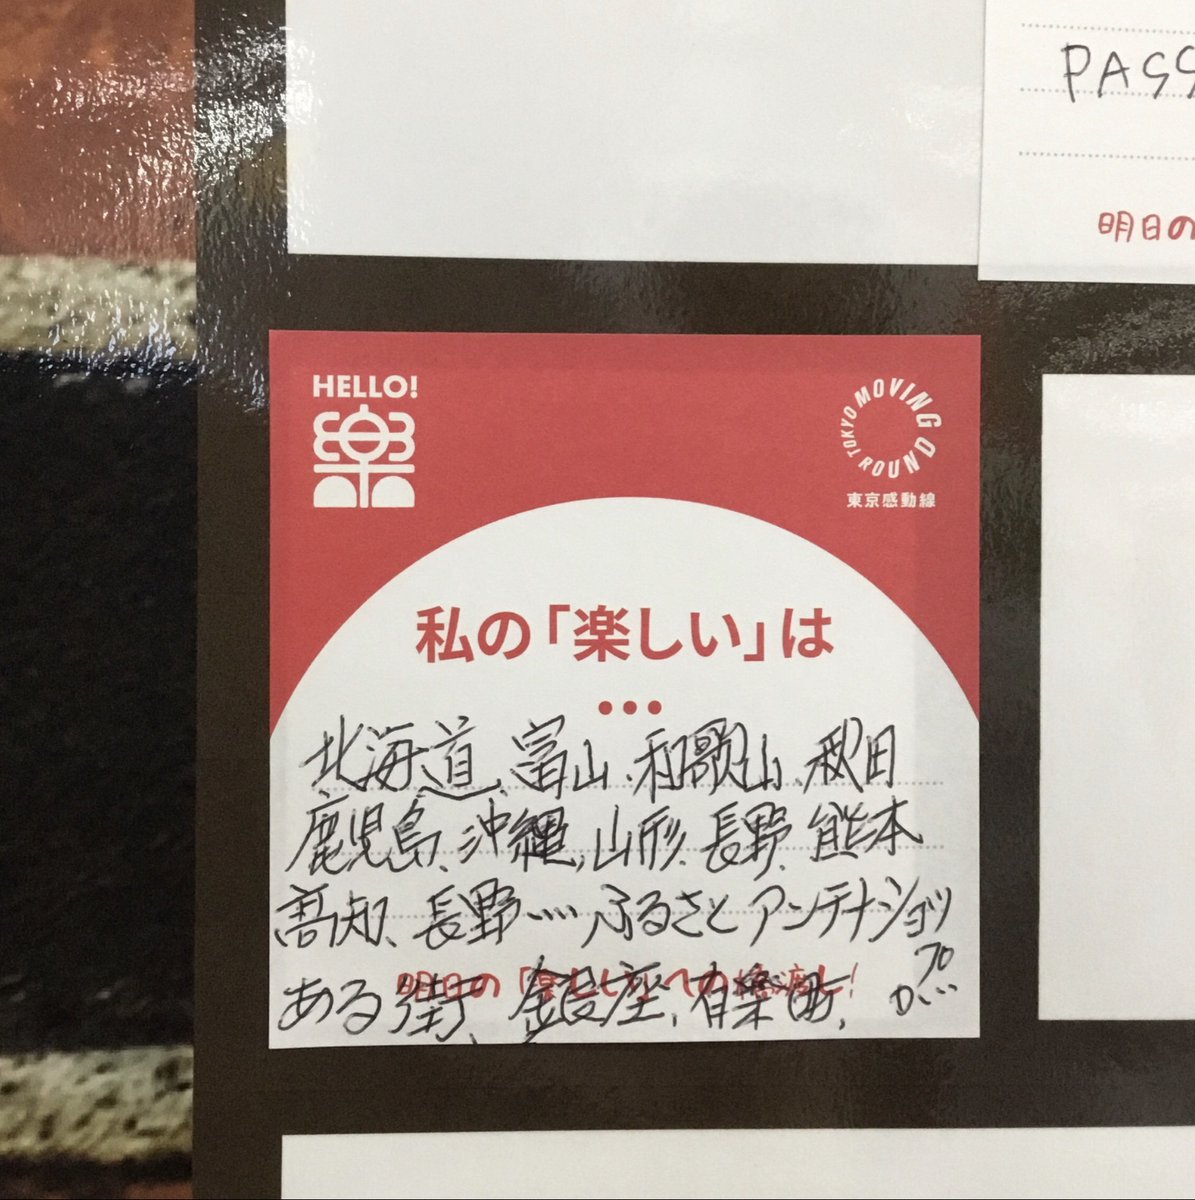 PASS
明日の
HELLO!
楽
TOKYO MOVING ROUND
東京感動線
私の「楽しい」は
•••
北海道、富山、和歌山、秋田
鹿児島、沖縄、山形、長野、熊本
高知、長野‥‥ふるさとアンテナショップ
明日の「楽しい」への橋渡し!
ある街、銀座、有楽町、